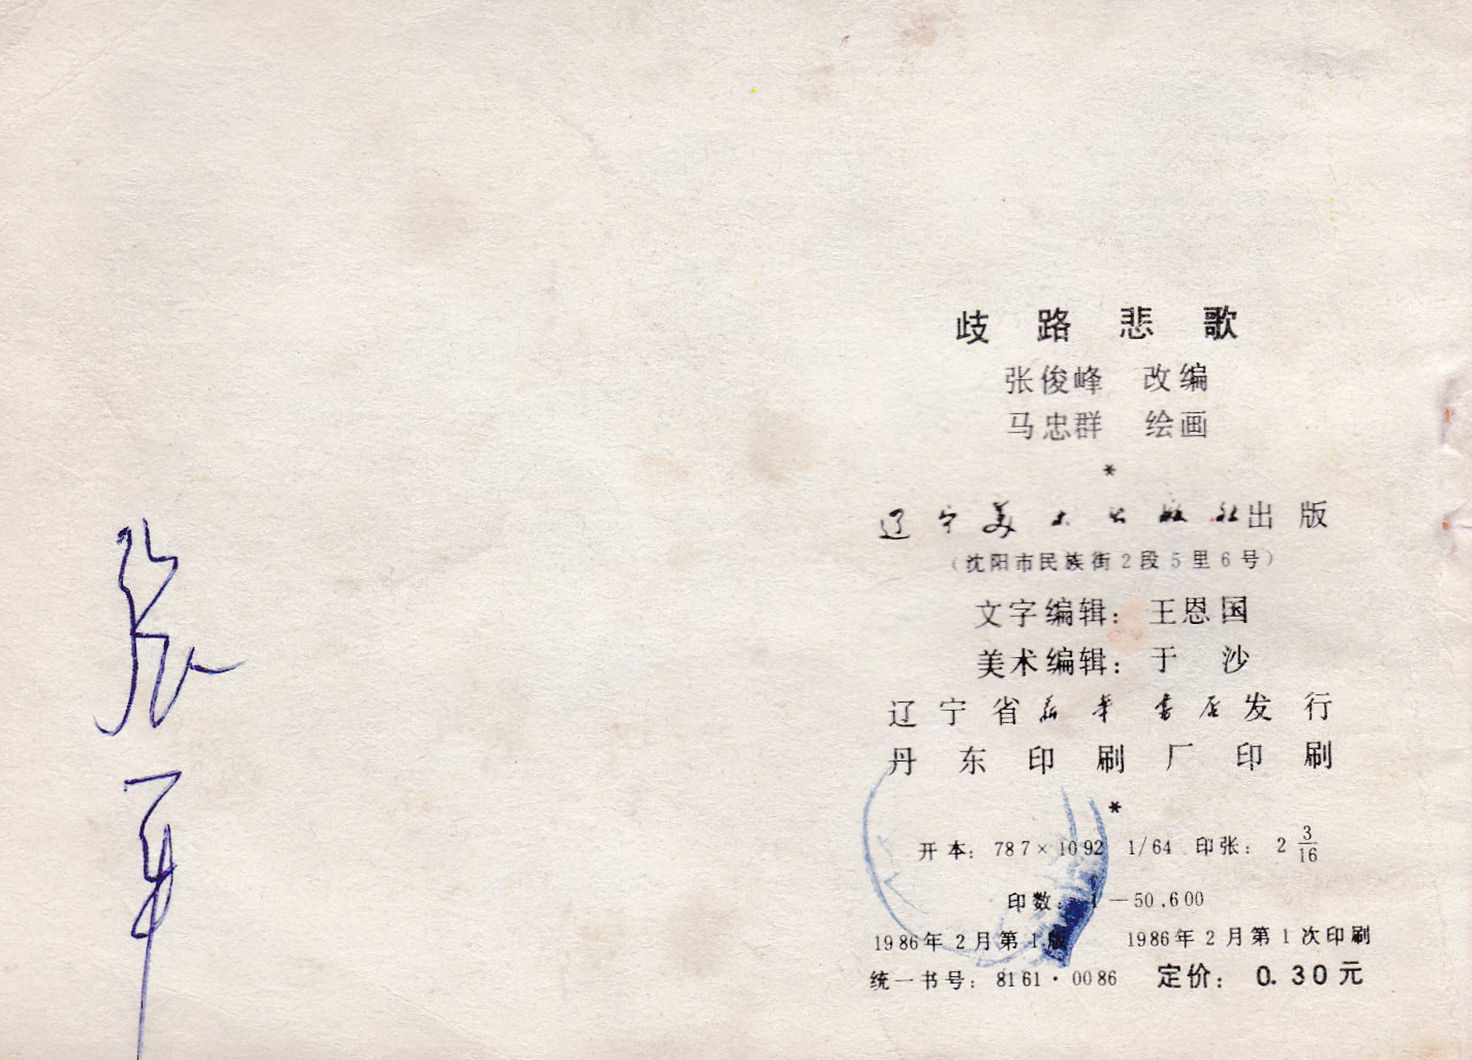 歧路悲歌
张俊峰 改编
马忠群 绘画
*
辽宁美术出版社出版
(沈阳市民族街2段5里6号)
文字编辑: 王恩国
美术编辑: 于 沙
辽宁省新华书店发行
丹东印刷厂印刷
*
开本: 787×1092 1/64 印张: 2 3/16
印数: 1—50,600
1986年2月第1版 1986年2月第1次印刷
统一书号: 8161·0086 定价: 0.30元
张军